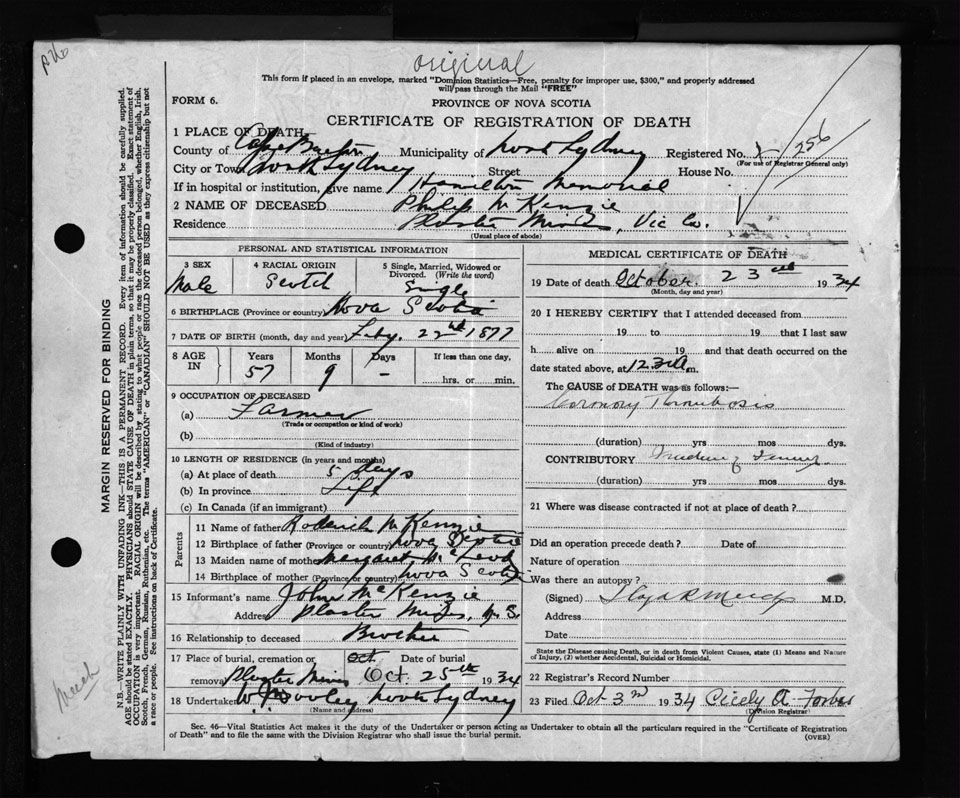 original
This form if placed in an envelope, marked "Dominion Statistics—Free, penalty for improper use, $300," and properly addressed
will pass through the Mail "FREE"
FORM 6.
PROVINCE OF NOVA SCOTIA
CERTIFICATE OF REGISTRATION OF DEATH
1 PLACE OF DEATH
County of Cape Breton Municipality of North Sydney Registered No. 256
(For use of Registrar General only)
City or Town North Sydney Street House No.
If in hospital or institution, give name Hamilton Memorial
2 NAME OF DECEASED Philip McKenzie
Residence Plaster Mines, Vic Co.
(Usual place of abode)
PERSONAL AND STATISTICAL INFORMATION
3 SEX 4 RACIAL ORIGIN 5 Single, Married, Widowed or Divorced. (Write the word)
Male Scotch Single
6 BIRTHPLACE (Province or country) Nova Scotia
7 DATE OF BIRTH (month, day and year) Feby. 22nd 1877
8 AGE IN Years Months Days If less than one day,
57 9 - hrs. or min.
9 OCCUPATION OF DECEASED
(a) Farmer
(Trade or occupation or kind of work)
(b)
(Kind of industry)
10 LENGTH OF RESIDENCE (in years and months)
(a) At place of death 5 days
(b) In province Life
(c) In Canada (if an immigrant)
Parents
11 Name of father Roderick McKenzie
12 Birthplace of father (Province or country) Nova Scotia
13 Maiden name of mother Margaret McLeod
14 Birthplace of mother (Province or country) Nova Scotia
15 Informant's name John McKenzie
Address Plaster Mines, N.S.
16 Relationship to deceased Brother
17 Place of burial, cremation or removal Date of burial
Plaster Mines Oct. Oct. 25th 1934
18 Undertaker North Sydney
(Name and address)
MEDICAL CERTIFICATE OF DEATH
19 Date of death October. 23rd 1934
(Month, day and year)
20 I HEREBY CERTIFY that I attended deceased from
19 to 19 that I last saw
h alive on 19 and that death occurred on the
date stated above, at 12.30 a m.
The CAUSE of DEATH was as follows:—
Coronary Thrombosis
(duration) yrs mos dys.
CONTRIBUTORY
(duration) yrs mos dys.
21 Where was disease contracted if not at place of death?
Did an operation precede death? Date of
Nature of operation
Was there an autopsy?
(Signed) M.D.
Address
Date
State the Disease causing Death, or in death from Violent Causes, state (1) Means and Nature
of Injury, (2) whether Accidental, Suicidal or Homicidal.
22 Registrar's Record Number
23 Filed Oct 3rd 1934 Cicely A. Forbes
(Division Registrar)
Sec. 46—Vital Statistics Act makes it the duty of the Undertaker or person acting as Undertaker to obtain all the particulars required in the "Certificate of Registration
of Death" and to file the same with the Division Registrar who shall issue the burial permit.
(OVER)
MARGIN RESERVED FOR BINDING
N.B.—WRITE PLAINLY WITH UNFADING INK—THIS IS A PERMANENT RECORD. Every item of information should be carefully supplied.
AGE should be stated EXACTLY. PHYSICIANS should STATE CAUSE OF DEATH in plain terms, so that it may be properly classified. Exact statement of
OCCUPATION is very important. RACIAL ORIGIN will be described by stating to what people or race the deceased person belonged, whether English, Irish,
Scotch, French, German, Russian, Ruthenian, etc. The terms "AMERICAN" or "CANADIAN" SHOULD NOT BE USED as they express citizenship but not
a race or people. See instructions on back of Certificate.